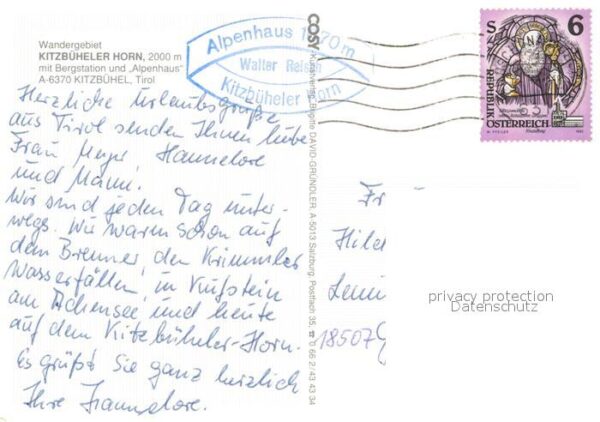 Wandergebiet
KITZBÜHELER HORN, 2000 m
mit Bergstation und „Alpenhaus"
A-6370 KITZBÜHEL, Tirol
Alpenhaus 1670 m
Walter
Kitzbüheler Horn
Herzliche Urlaubsgrüße
aus Tirol senden Ihnen liebe
Frau Meyer Hannelore
und Manni.
Wir sind jeden Tag unter-
wegs. Wir waren schon auf
dem Brenner, den Krimmler
Wasserfällen, in Kufstein
am Achensee, und heute
auf dem Kitzbüheler-Horn.
Es grüßt Sie ganz herzlich
Ihre Hannelore.
COSY Kunstverlag, Brigitte DAVID-GRÜNDLER, A-5013 Salzburg, Postfach 35, 0 66 2/43 43 34
S 6
REPUBLIK
ÖSTERREICH
Fr
Hild
18507
privacy protection
Datenschutz